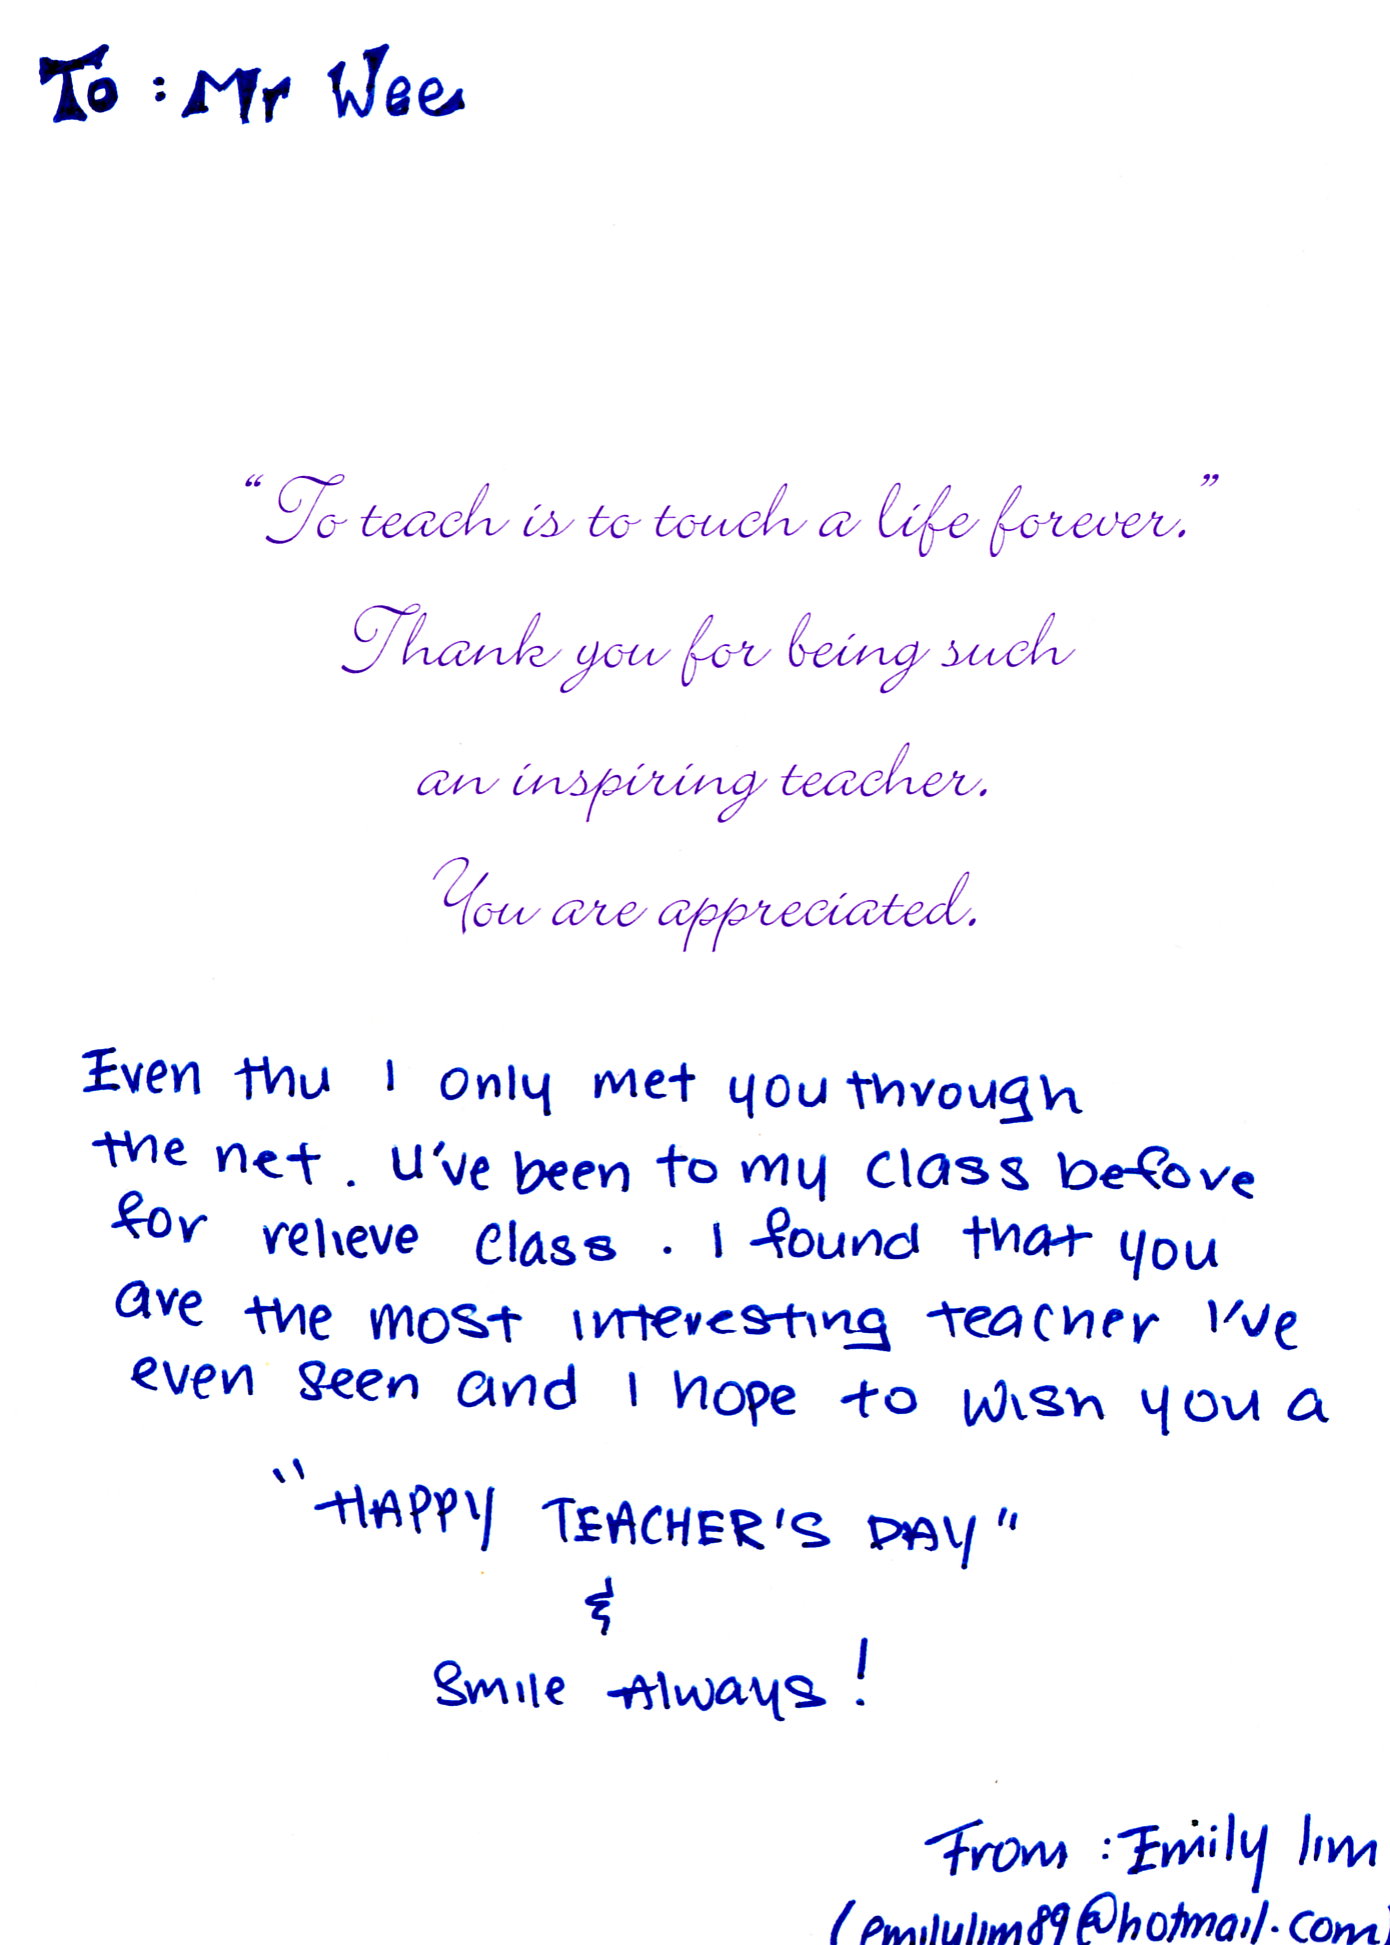 To : Mr Wee
“To teach is to touch a life forever.”
Thank you for being such
an inspiring teacher.
You are appreciated.
Even thu I only met you through
the net. U've been to my class before
for relieve class. I found that you
are the most interesting teacher I've
even seen and I hope to wish you a
"HAPPY TEACHER'S DAY"
&
Smile Always!
From : Emily lim
(emilylim89@hotmail.com)